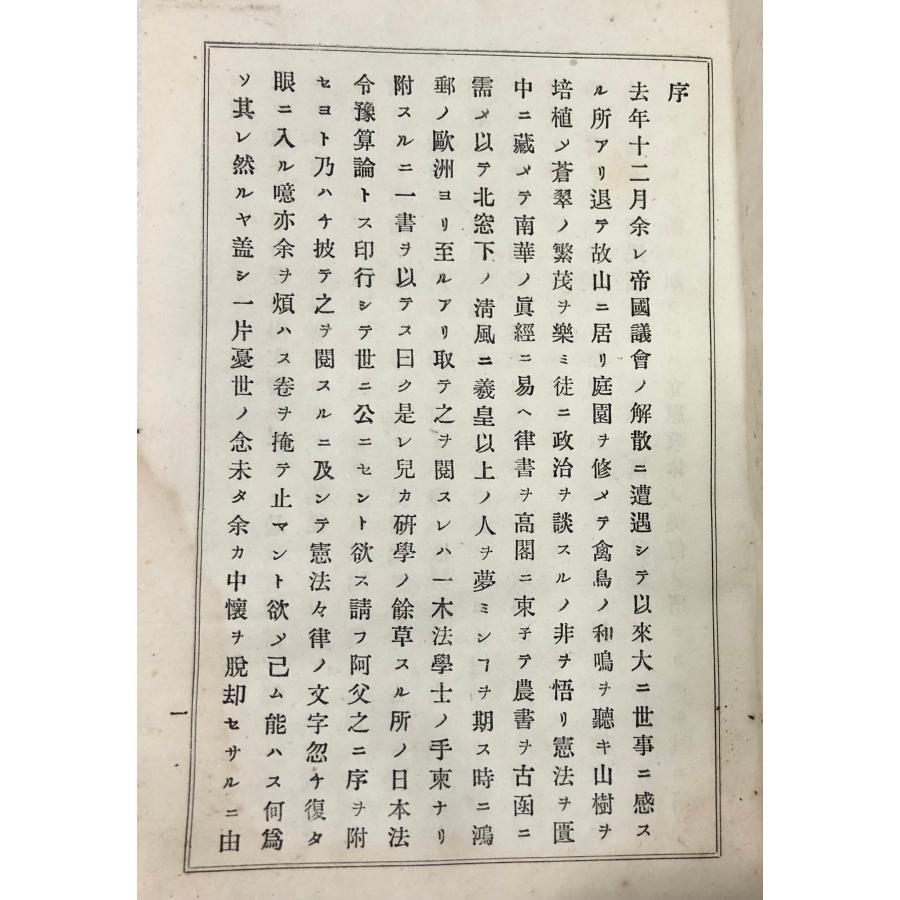 序
去年十二月余レ帝國議會ノ解散ニ遭遇シテ以來大ニ世事ニ感ス
ル所アリ退テ故山ニ居リ庭園ヲ修メテ禽鳥ノ和鳴ヲ聽キ山樹ヲ
培植シ蒼翠ノ繁茂ヲ樂ミ徒ニ政治ヲ談スルノ非ヲ悟リ憲法ヲ匱
中ニ藏メテ南華ノ眞經ニ易ヘ律書ヲ高閣ニ束子テ農書ヲ古凾ニ
需メ以テ北窓下ノ清風ニ羲皇以上ノ人ヲ夢ミンヿヲ期ス時ニ鴻
郵ノ歐洲ヨリ至ルアリ取テ之ヲ閲スレハ一木法學士ノ手柬ナリ
附スルニ一書ヲ以テス曰ク是レ兒カ硏學ノ餘草スル所ノ日本法
令豫算論トス印行シテ世ニ公ニセント欲ス請フ阿父之ニ序ヲ附
セヨト乃ハチ披テ之ヲ閲スルニ及ンテ憲法々律ノ文字忽チ復タ
眼ニ入ル噫亦余ヲ煩ハス卷ヲ掩テ止マント欲シ已ム能ハス何爲
ソ其レ然ルヤ盖シ一片憂世ノ念未タ余カ中懷ヲ脫却セサルニ由
一